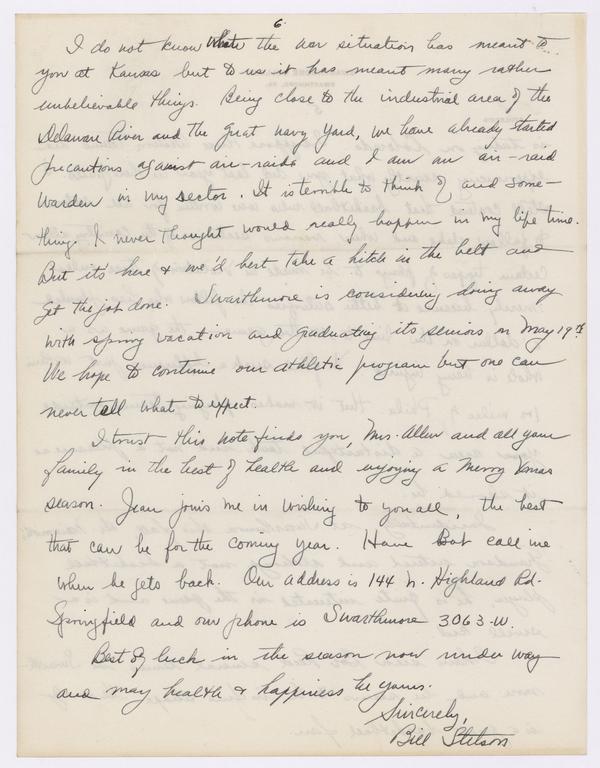 6.
I do not know what the war situation has meant to
you at Kansas but to us it has meant many rather
unbelievable things. Being close to the industrial area of the
Delaware River and the great navy yard, we have already started
precautions against air-raids and I am an air-raid
warden in my sector. It is terrible to think of and some-
thing I never thought would really happen in my life time.
But it's here & we'd best take a hitch in the belt and
get the job done. Swarthmore is considering doing away
with spring vacation and graduating its seniors on May 19th.
We hope to continue our athletic program but one can
never tell what to expect.
I trust this note finds you, Mrs. Allen and all your
family in the best of health and enjoying a Merry Xmas
season. Jean joins me in wishing to you all, the best
that can be for the coming year. Have Bob call me
when he gets back. Our address is 144 N. Highland Rd.
Springfield and our phone is Swarthmore 3063-W.
Best of luck in the season now under way
and may health & happiness be yours.
Sincerely,
Bill Stetson